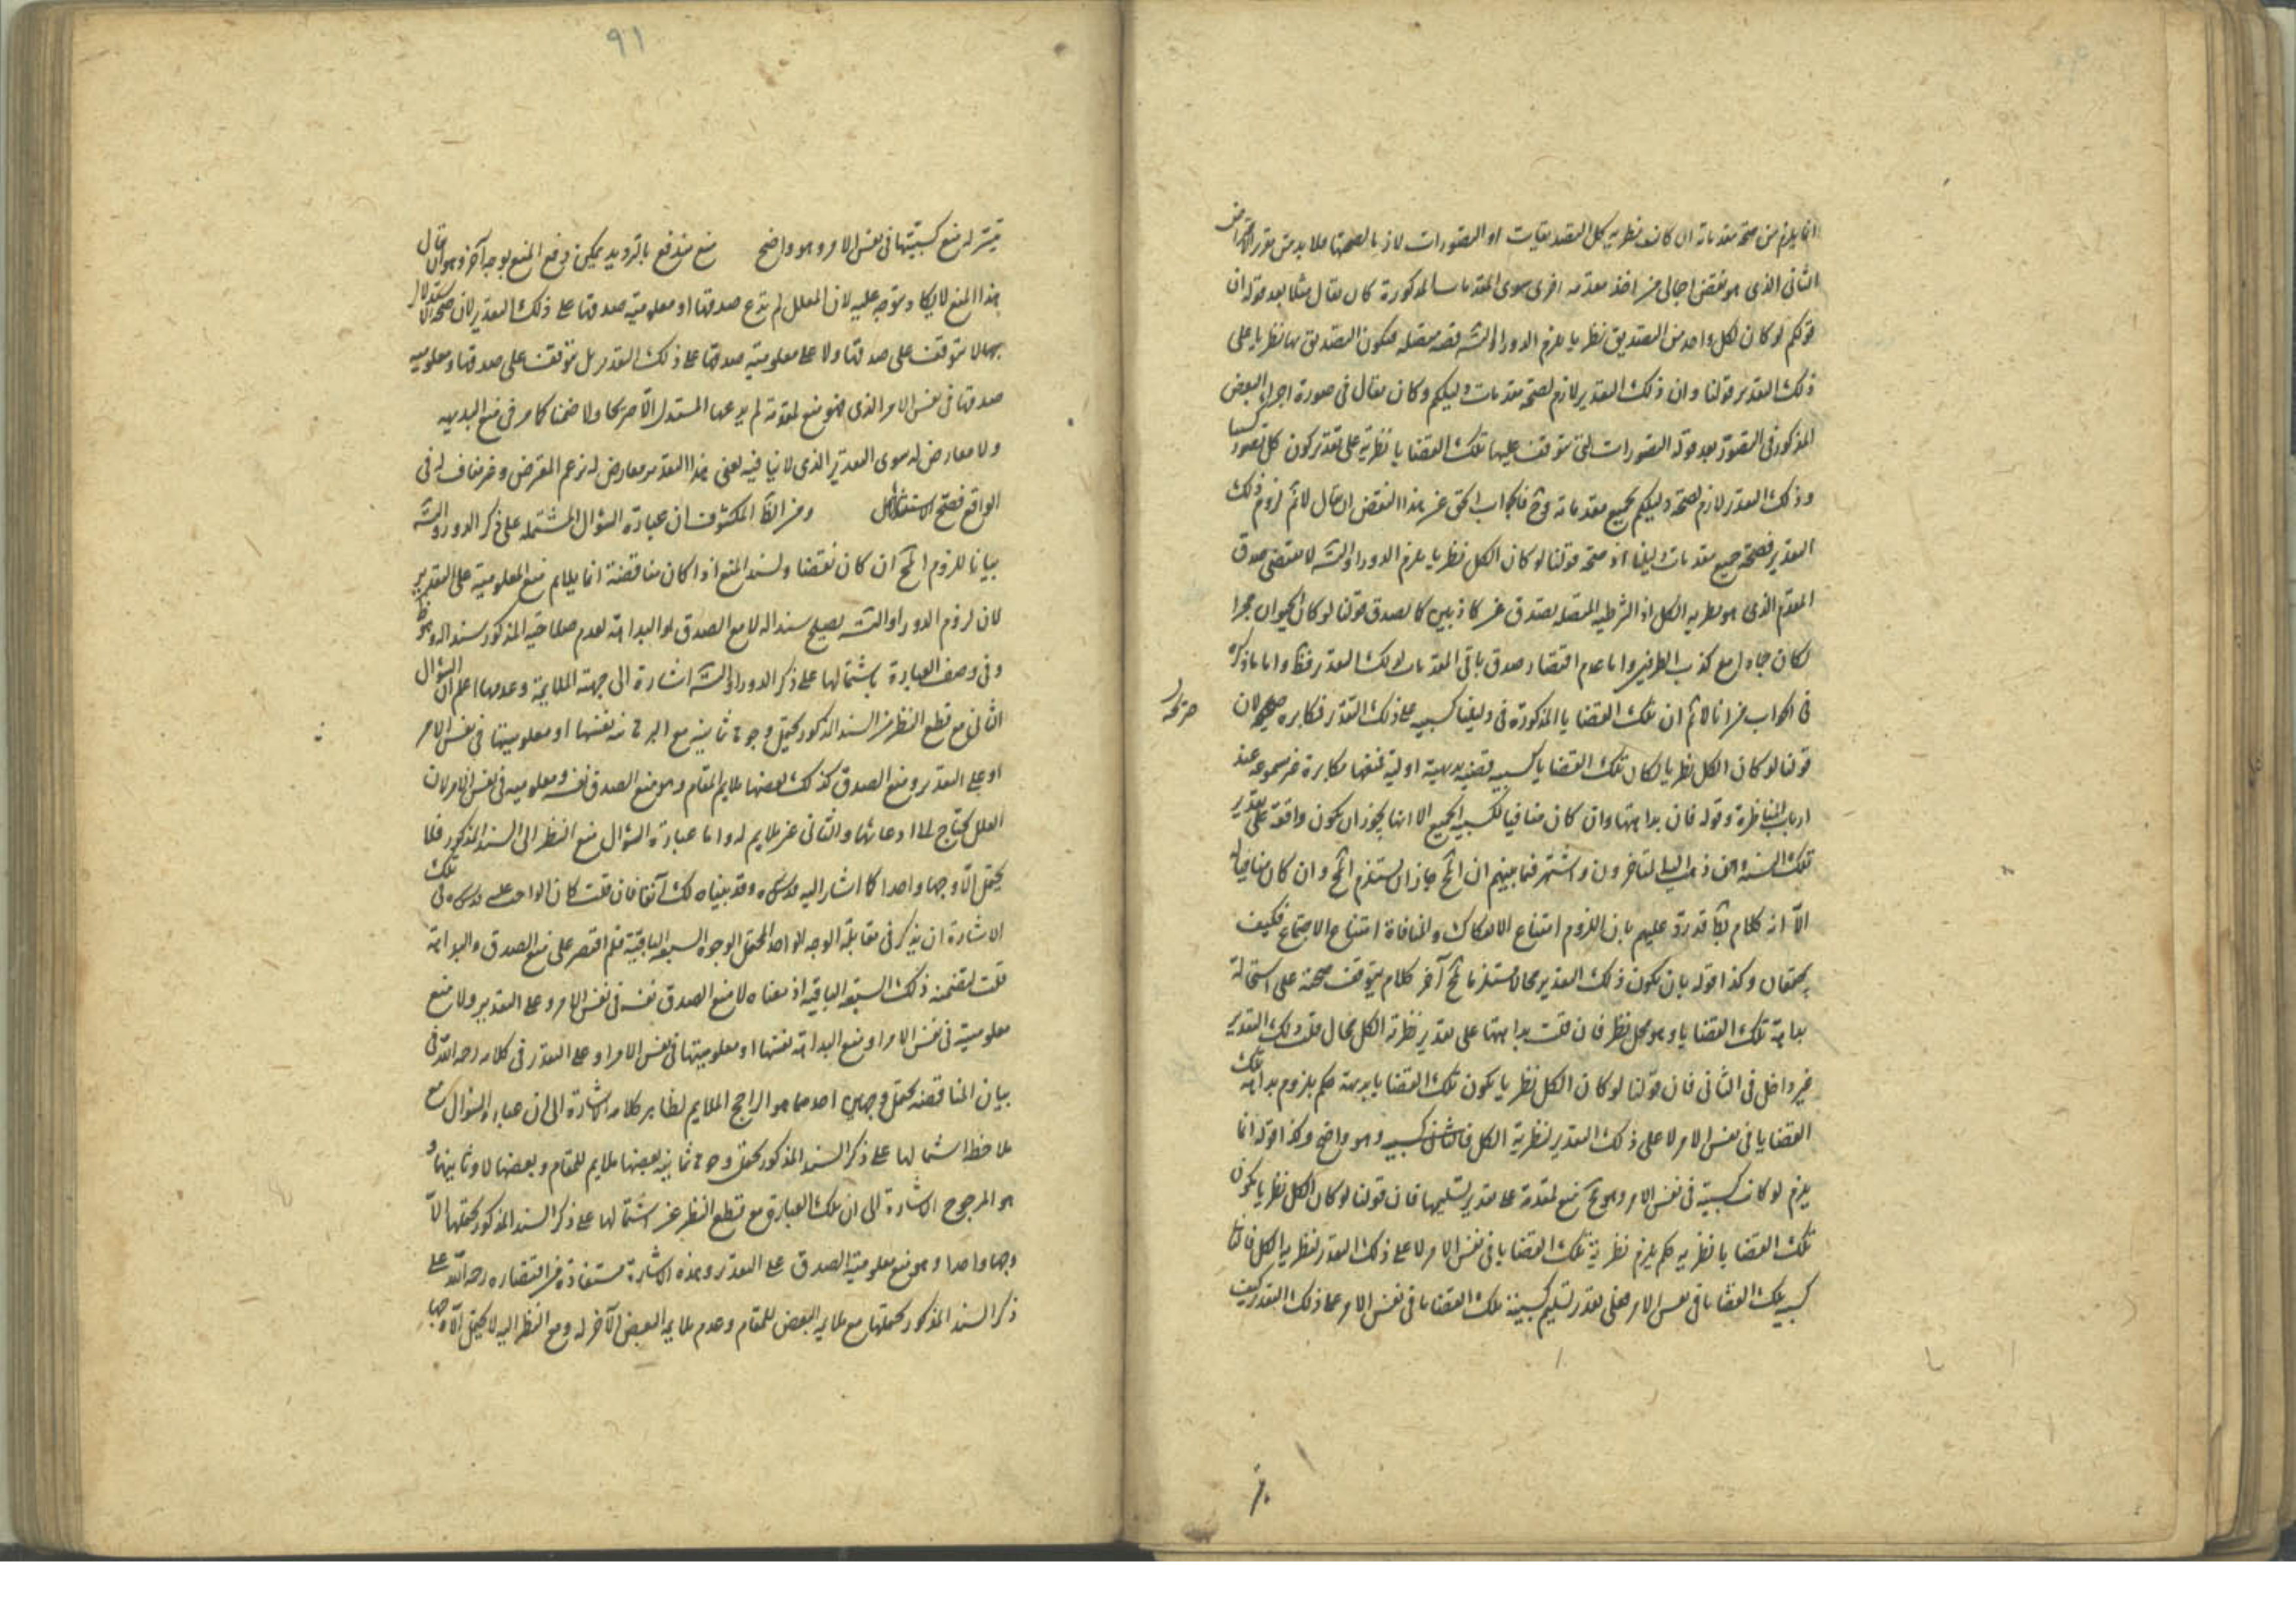 انما يلزم من صحة مقدماته ان كانت نظرية كل التصديقات او التصورات لازما لصحتها فلا بد من تقرير الاعتراض
الثاني الذي هو نقض اجمالي من اخذ مقدمة اخرى سوى المقدمات المذكورة كان يقال مثلا بعد قوله ان
قولكم لو كان كل واحد من التصديق نظريا يلزم الدور او التسلسل قضية متصلة فيكون التصديق بها نظريا على
ذلك التقدير قولنا وان ذلك التقدير لازم لصحة مقدمات دليلكم وكان يقال في صورة اجراء النقض
المذكور في التصور بعد قوله التصورات التي تتوقف عليها تلك القضايا نظرية على تقدير كون كل تصور كسبيا
وذلك التقدير لازم لصحة دليلكم بجميع مقدماته وح فالجواب الحق عن هذا النقض ان يقال لا نم لزوم ذلك
التقدير لصحة جميع مقدمات دليلنا اذ صحة قولنا لو كان الكل نظريا يلزم الدور او التسلسل لا يقتضي صدق
المقدم الذي هو نظرية الكل اذ الشرطية المتصلة تصدق عن كاذبين كما يصدق قولنا لو كان الحيوان حجرا
لكان جمادا مع كذب الطرفين واما عدم اقتضاء صدق باقي المقدمات لذلك التقدير فظ واما ما ذكره
في الجواب من انا لا نم ان تلك القضايا المذكورة في دليلنا كسبية على ذلك التقدير فمكابرة صريحة لان
قولنا لو كان الكل نظريا لكان تلك القضايا كسبية قضية بديهية اولية فمنعها مكابرة غير مسموعة عند
ارباب المناظرة وقوله فان بداهتها وان كان منافيا لكسبية الجميع الا انها يجوز ان يكون واقعة على تقدير
تلك ذهب اليه المتاخرون واشتهر فيما بينهم ان المح جاز ان يستلزم المح وان كان منافيا له
الا انه كلام قد رد عليهم بان اللزوم امتناع الانفكاك والمنافاة امتناع الاجتماع فكيف
يجتمعان وكذا قوله بان يكون ذلك التقدير محالا مستلزما لمح آخر كلام يتوقف صحته على استحالة
بداهة تلك القضايا وهو محل نظر فان قلت بداهتها على تقدير نظرية الكل محال قلت ذلك التقدير
غير داخل في التالي فان قولنا لو كان الكل نظريا يكون تلك القضايا بديهية حكم بلزوم بداهة تلك
القضايا في نفس الامر لا على ذلك التقدير لنظرية الكل كسبية وهو واضح وكذا قوله انما
يلزم لو كانت كسبية في نفس الامر وهو مم منع لمقدمة على تقدير تسليمها فان قولنا لو كان الكل نظريا يكون
تلك القضايا نظرية حكم يلزم نظرية تلك القضايا في نفس الامر لا على ذلك التقدير لنظرية الكل
كسبية تلك القضايا في نفس الامر فعلى تقدير تسليم كسبية تلك القضايا في نفس الامر على ذلك التقدير كيف
٩١
يتيسر له منع كسبيتها في نفس الامر وهو واضح منع مندفع بالترديد يمكن دفع المنع بوجه آخر وهو ان يقال
هذا المنع لا يكاد يتوجه عليه لان المعلل لم يدع صدقها او معلومية صدقها على ذلك التقدير لان صحة الاستدلال
بها لا تتوقف على صدقها ولا على معلومية صدقها على ذلك التقدير بل تتوقف على صدقها ومعلومية
صدقها في نفس الامر الذي فهو منع لمقدمة لم يدعها المستدل لا صريحا ولا ضمنا كما مر في منع البديهية
ولا معارض له سوى التقدير الذي لا ينافيه يعني هذا التقدير معارض له بزعم المعترض وغير مناف له في
الواقع فصح الاستدلال ومن الظ المكشوف ان عبارة السؤال المشتملة على ذكر الدور والتسلسل
بيانا للزوم المح ان كان نقضا ولسند المنع اذا كان مناقضة انما يلايم منع المعلومية على التقدير
لان لزوم الدور او التسلسل يصلح سندا له لا منع الصدق او البداهة لعدم صلاحية المذكور سندا له وهو ظ
وفي وصف العبارة باشتمالها على ذكر الدور او التسلسل اشارة الى جهة الملايمة وعدمها اعلم ان السؤال
الثاني مع قطع النظر عن السند المذكور يحتمل وجوها ثمانية منع البداهة نفسها او معلوميتها في نفس الامر
او على التقدير ومنع الصدق كذلك بعضها ملايم للمقام وهو منع الصدق نفسه ومعلوميته في نفس الامر لان
المعلل يحتاج الى ادعائها والثاني غير ملايم له واما عبارة السؤال مع النظر الى السند المذكور فلا
يحتمل الا وجها واحدا كما اشار اليه قدس سره وقد بيناه لك آنفا فان قلت كان الواجب عليه قدس سره في تلك
الاشارة ان يذكر في مقابلة الوجه الواحد المحتمل الوجوه السبعة الباقية فلم اقتصر على منع الصدق والبداهة
قلت لتضمنه ذلك السبعة الباقية اذ معناه لا منع الصدق نفسه في نفس الامر وعلى التقدير ولا منع
معلوميته في نفس الامر او منع البداهة نفسها او معلوميتها في نفس الامر او على التقدير في كلامه رحمه الله في
بيان المناقضة يحتمل وجهين احدهما هو الراجح الملايم لظاهر كلامه الاشارة الى ان عبارة السؤال مع
ملاحظة اشتمالها على ذكر السند المذكور يحتمل وجوها ثمانية بعضها ملايم للمقام وبعضها لا وثانيهما و
هو المرجوح الاشارة الى ان تلك العبارة مع قطع النظر عن اشتمالها على ذكر السند المذكور يحتملها الا
وجها واحدا وهو منع معلومية الصدق على التقدير وهذه الاشارة مستفادة من اقتصاره رحمه الله على
ذكر السند المذكور يحتملها مع ملايمة البعض للمقام وعدم ملايمة البعض الآخر له ومع النظر اليه لا يحتمل الا وجها